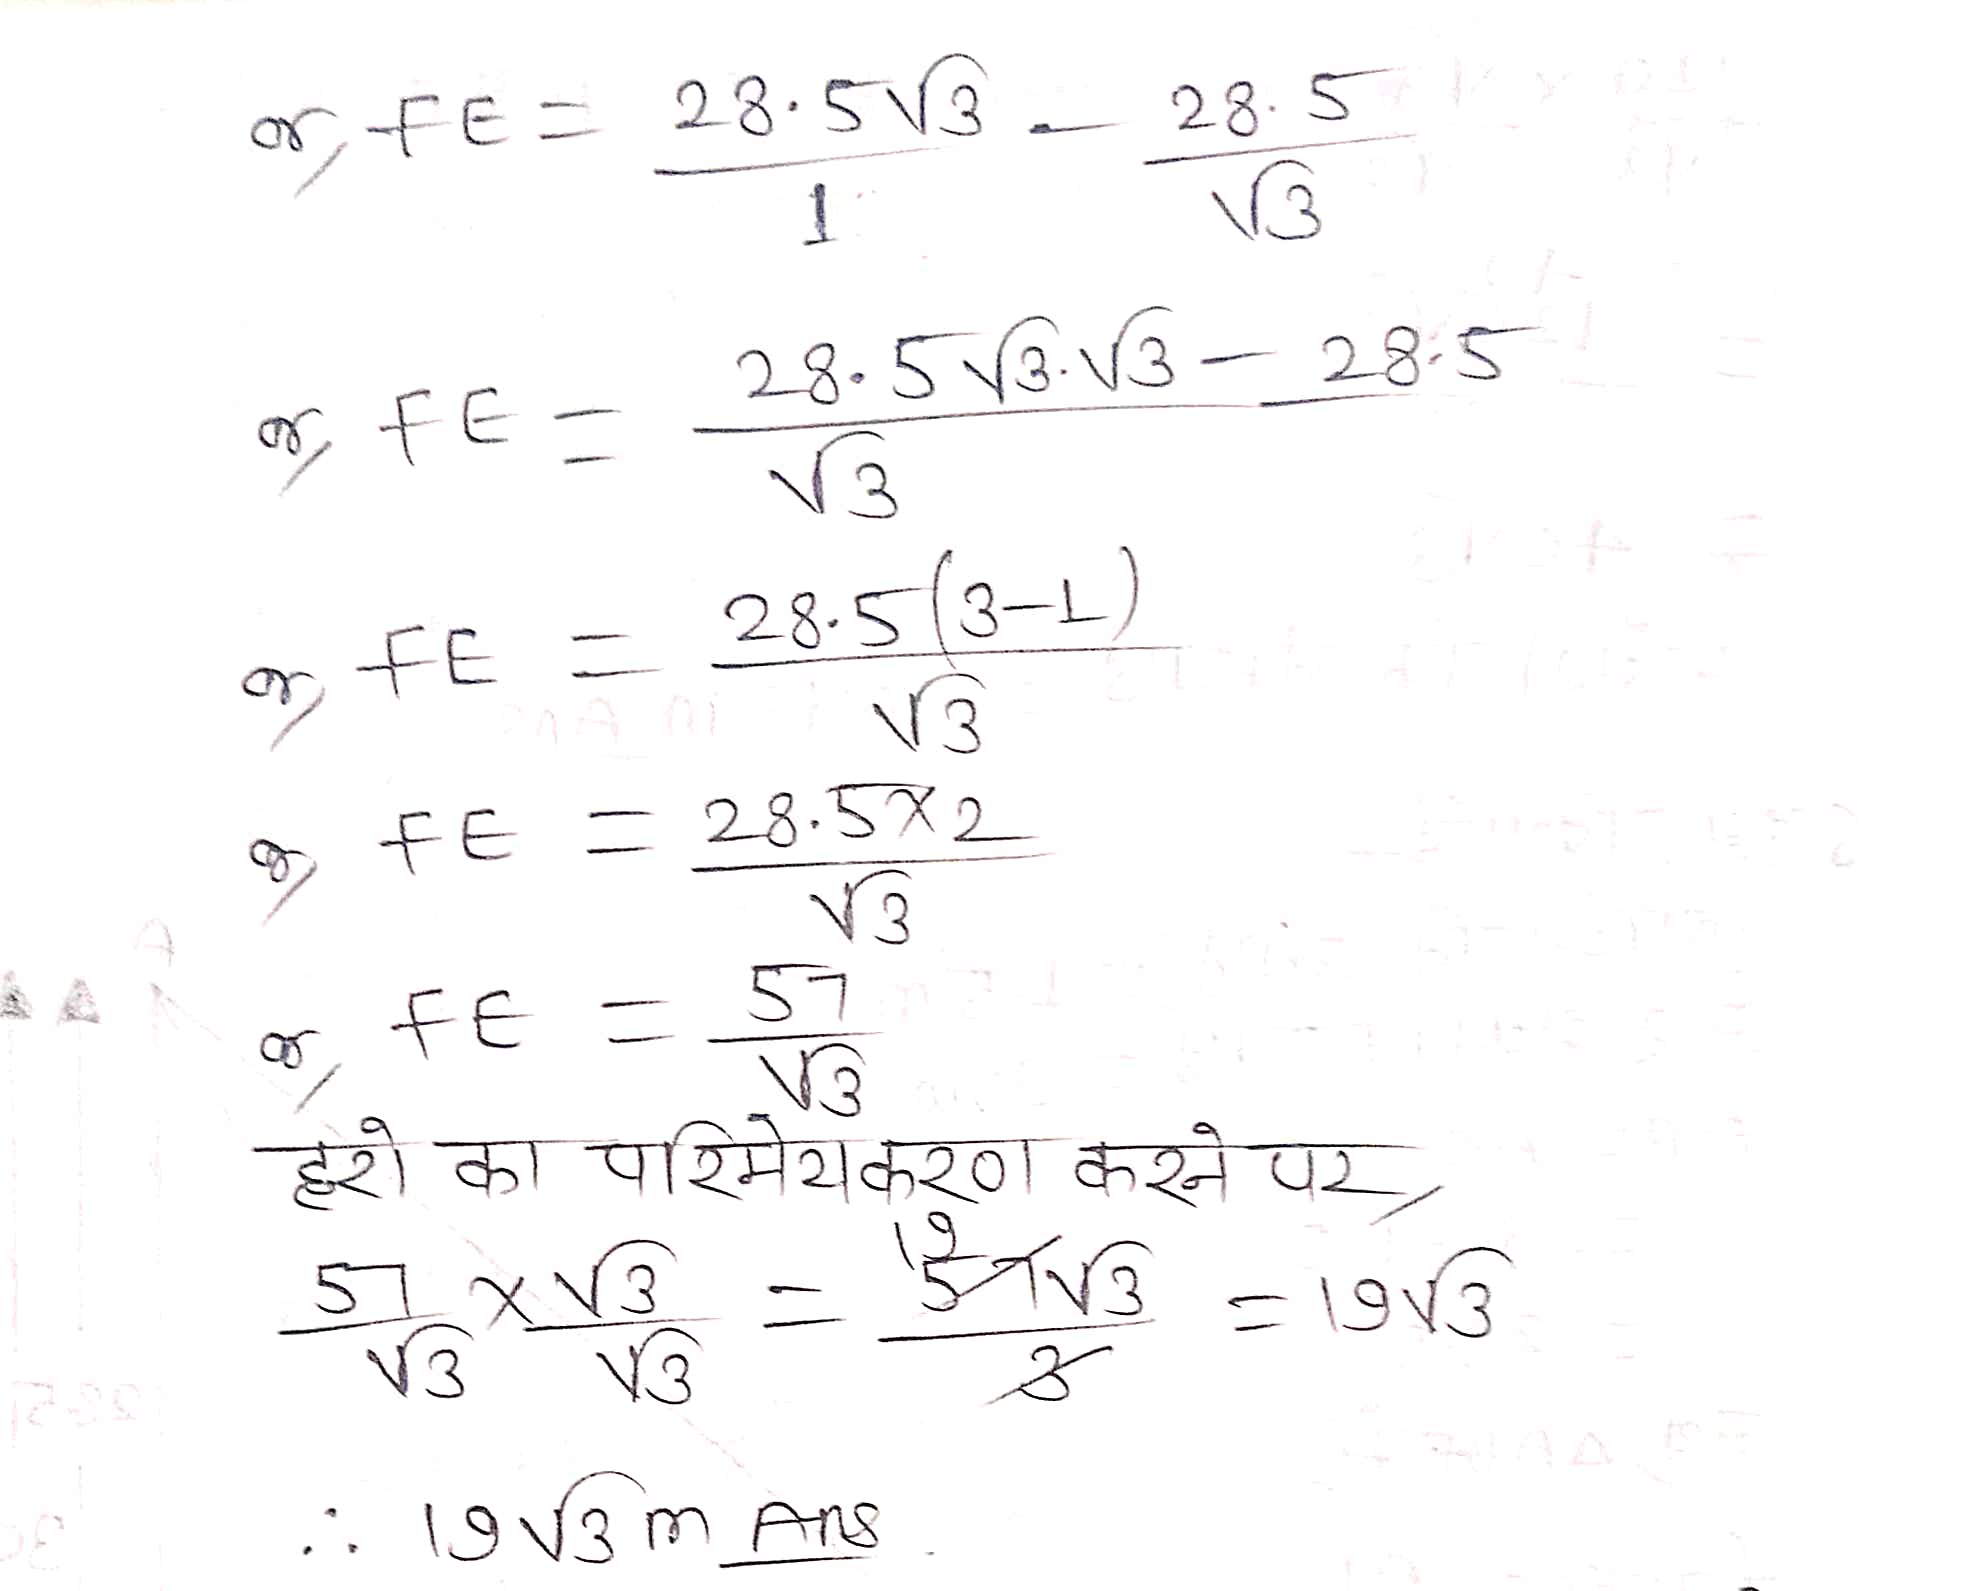 or, FE = 28.5√3/1 - 28.5/√3
or, FE = 28.5√3.√3 - 28.5/√3
or, FE = 28.5(3-1)/√3
or, FE = 28.5×2/√3
or, FE = 57/√3
हरो का परिमेयकरण करने पर,
57/√3 × √3/√3 = 19 57√3/3 = 19√3
∴ 19√3 m Ans